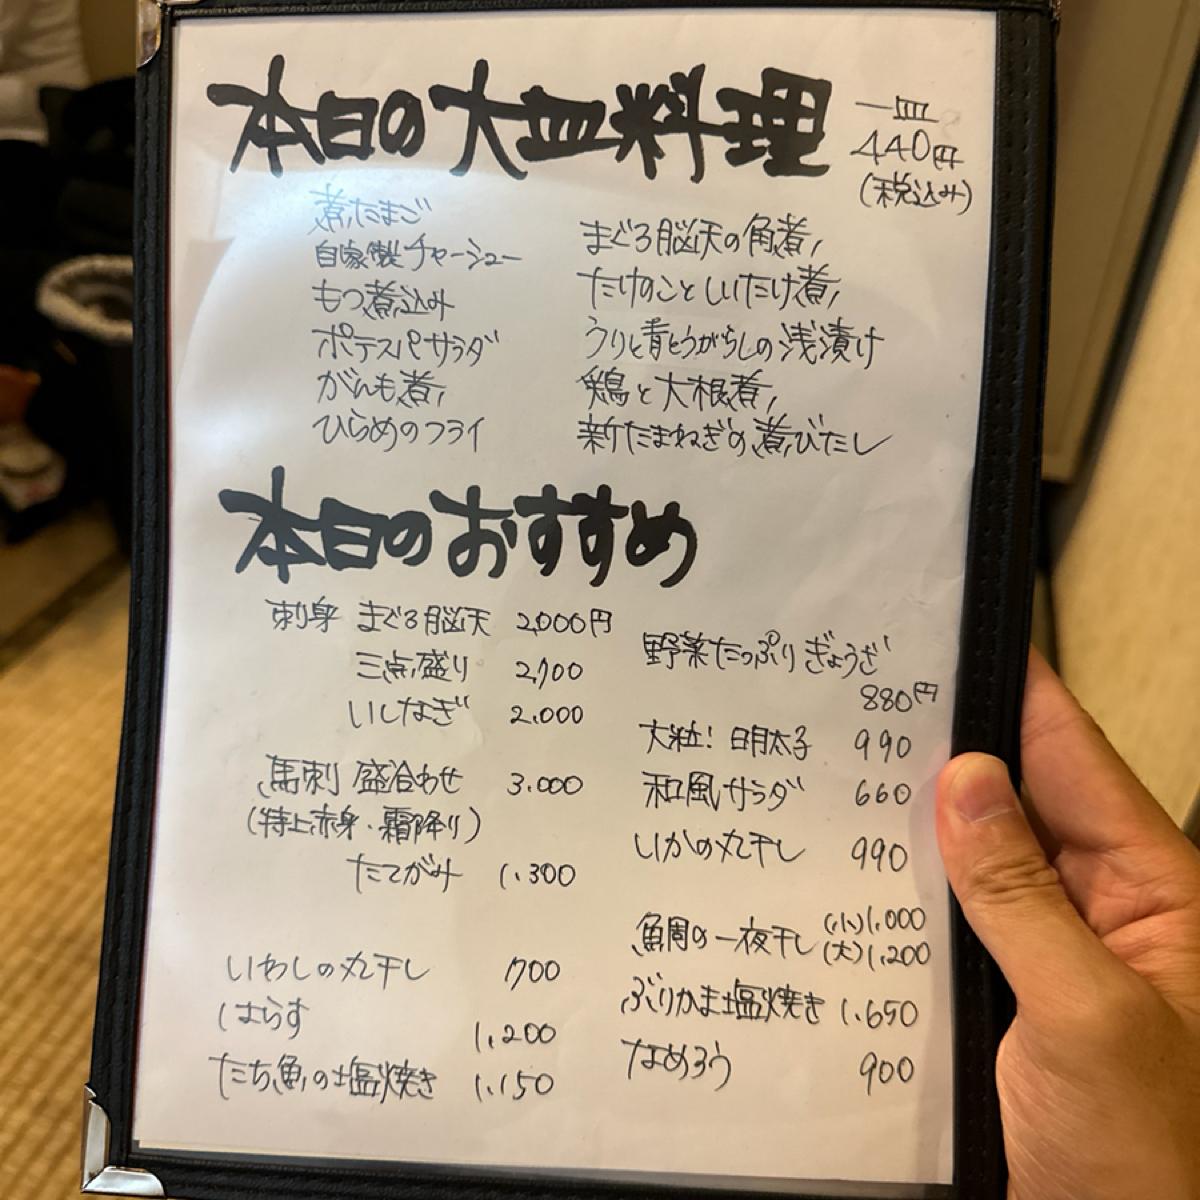 本日の大皿料理
一皿
440円
(税込み)
煮たまご
自家製チャーシュー
もつ煮込み
ポテスパサラダ
がんも煮
ひらめのフライ
まぐろ脳天の角煮
たけのことしいたけ煮
うりと青とうがらしの浅漬け
鶏と大根煮
新たまねぎの煮びたし
本日のおすすめ
刺身 まぐろ脳天 2,000円
三点盛り 2,700
いしなぎ 2.000
馬刺 盛合わせ 3.000
(特上赤身・霜降り)
たてがみ 1.300
いわしの丸干し 700
はらす 1,200
たち魚の塩焼き 1.150
野菜たっぷりぎょうざ
880円
大粒!明太子 990
和風サラダ 660
いかの丸干し 990
鯛の一夜干し (小)1.000
(大)1,200
ぶりかま塩焼き 1.650
なめろう 900